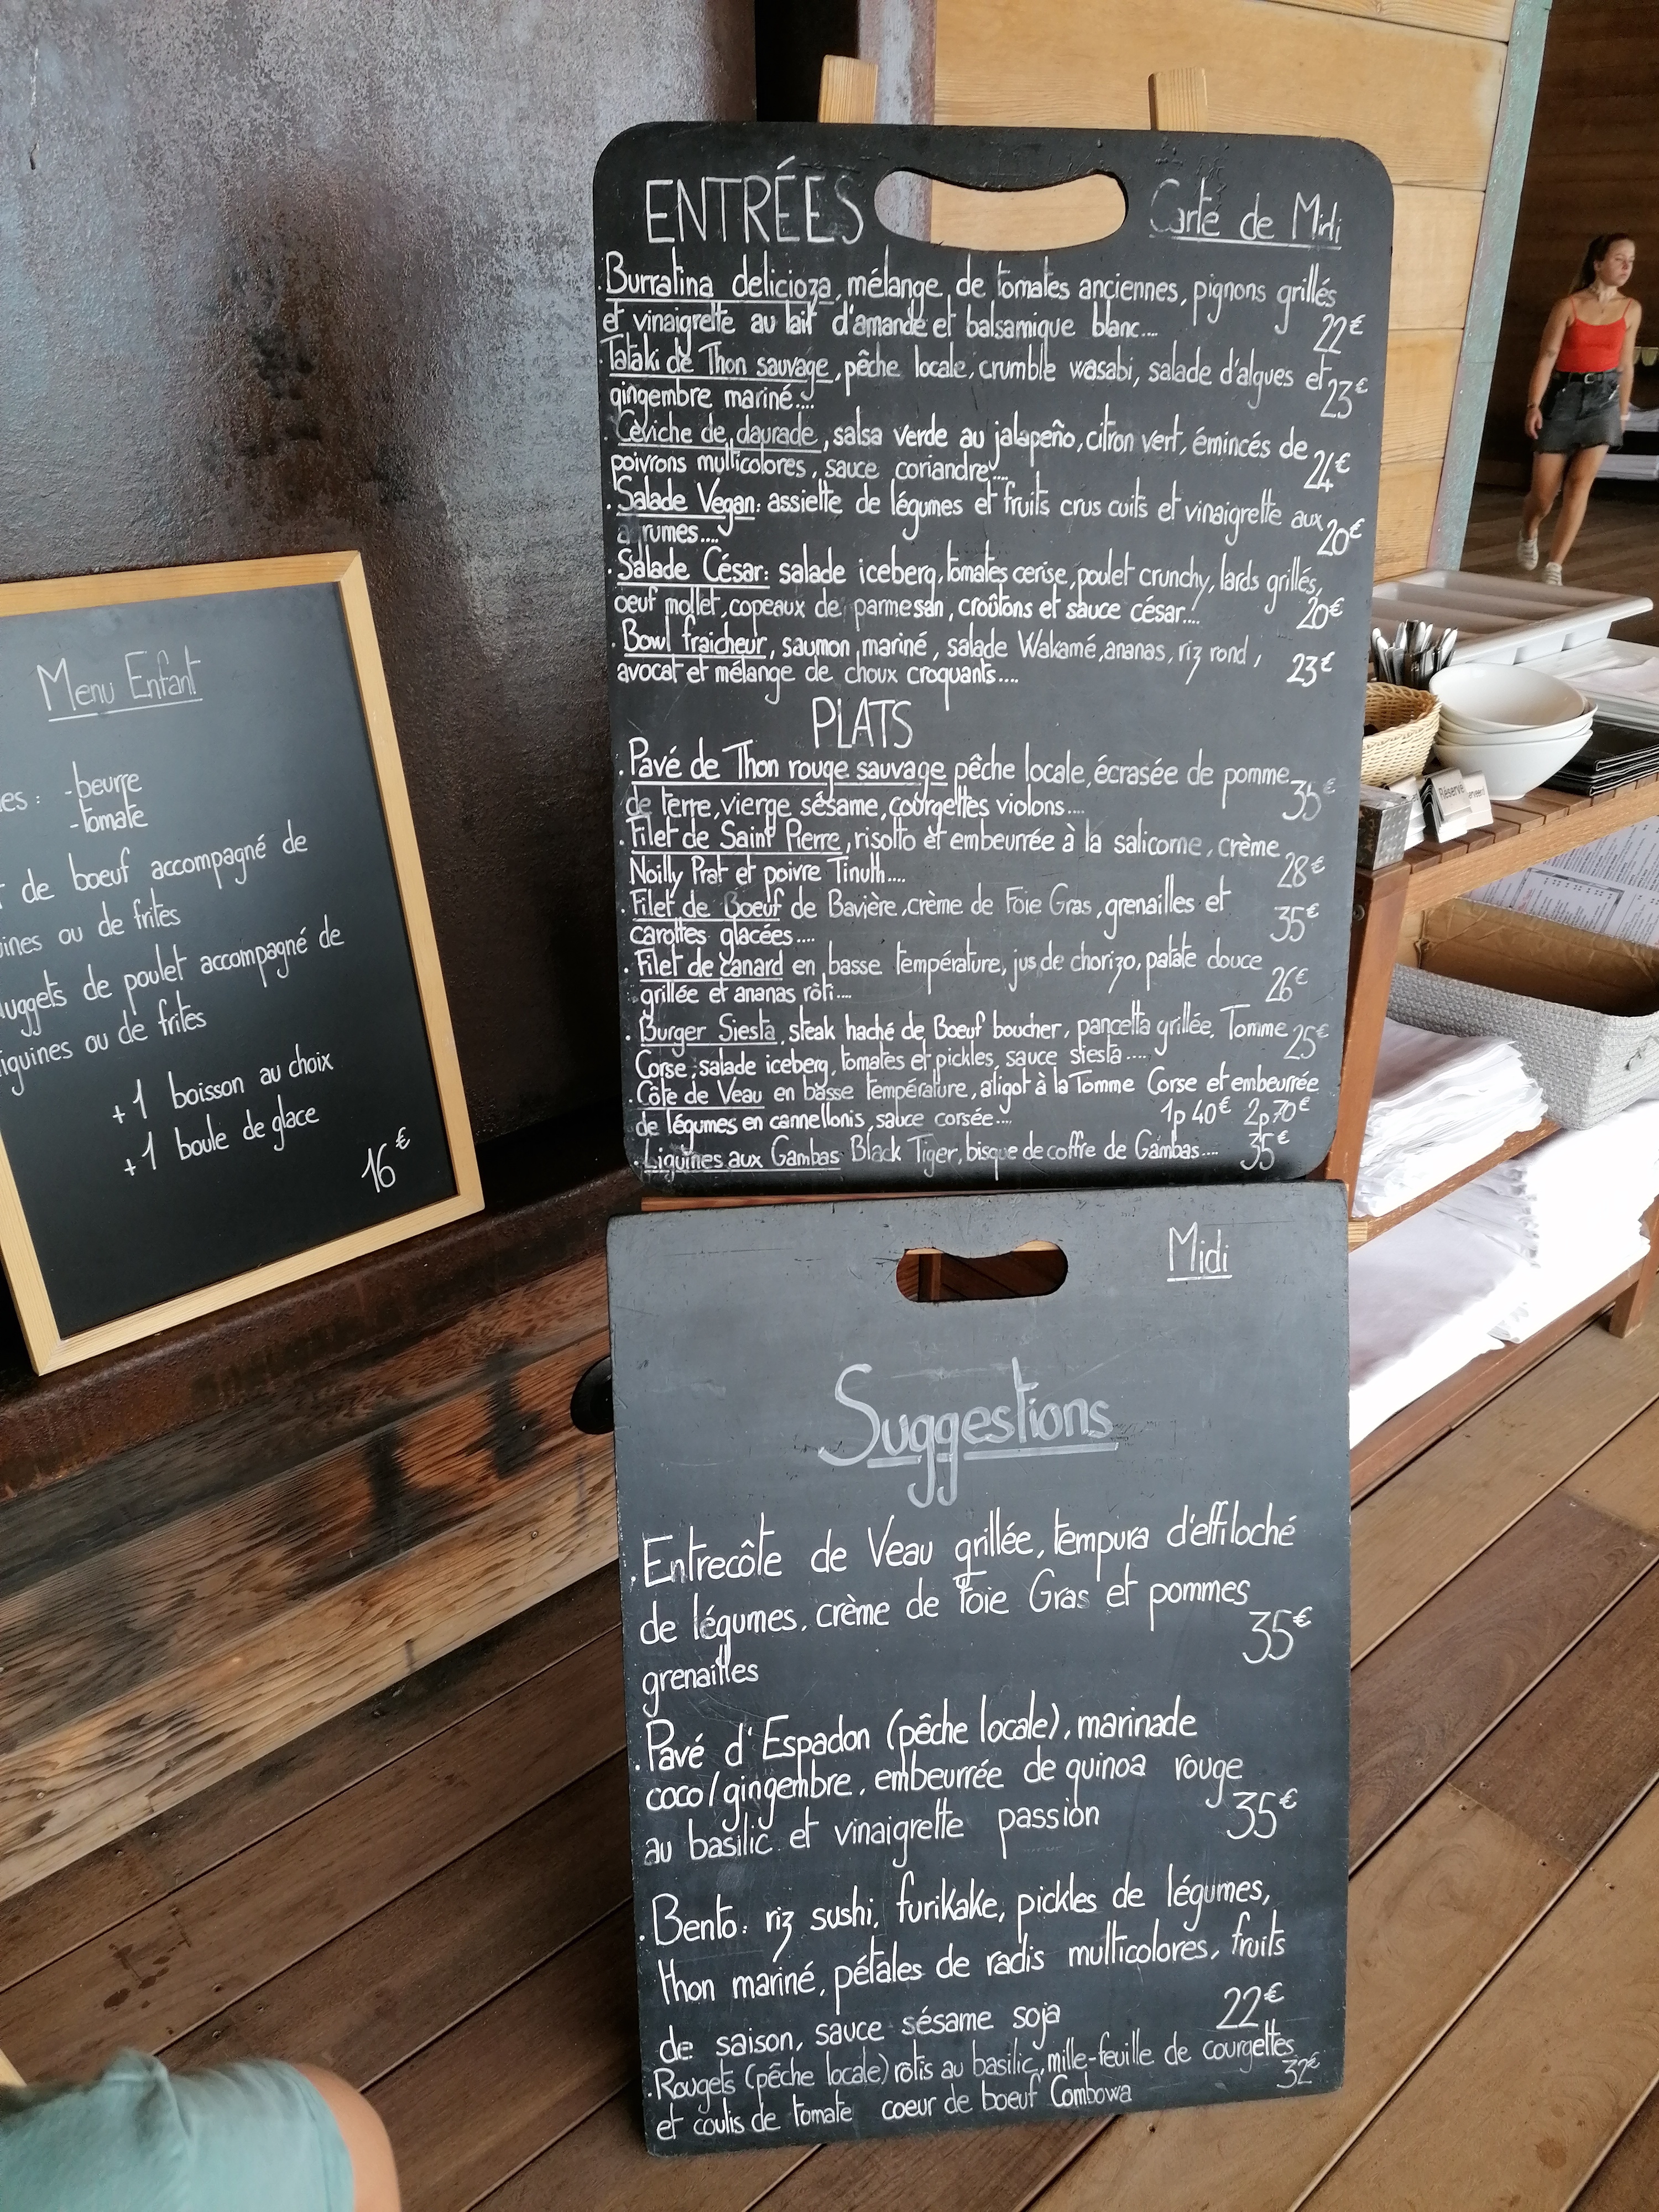 Menu Enfant
es : - beurre
- tomate
de boeuf accompagné de
ines ou de frites
uggets de poulet accompagné de
iguines ou de frites
+ 1 boisson au choix
+ 1 boule de glace
16€
ENTRÉES
Carte de Midi
. Burratina delicioza, mélange de tomates anciennes, pignons grillés
et vinaigrette au lait d'amande et balsamique blanc.... 22€
. Tataki de Thon sauvage, pêche locale, crumble wasabi, salade d'algues et 23€
gingembre mariné....
. Ceviche de daurade, salsa verde au jalapeño, citron vert, émincés de
poivrons multicolores, sauce coriandre.... 24€
. Salade Vegan: assiette de légumes et fruits crus cuits et vinaigrette aux
a rumes.... 20€
. Salade César: salade iceberg, tomates cerise, poulet crunchy, lards grillés,
oeuf mollet, copeaux de parmesan, croûtons et sauce césar.... 20€
. Bowl fraicheur, saumon mariné, salade Wakamé, ananas, riz rond,
avocat et mélange de choux croquants.... 23€
PLATS
. Pavé de Thon rouge sauvage pêche locale, écrasée de pomme
de terre, vierge sésame, courgettes violons.... 35€
. Filet de Saint Pierre, risotto et embeurrée à la salicorne, crème
Noilly Prat et poivre Tinuth.... 28€
. Filet de Boeuf de Bavière, crème de Foie Gras, grenailles et
carottes glacées.... 35€
. Filet de canard en basse température, jus de chorizo, patate douce
grillée et ananas rôti.... 26€
. Burger Siesta, steak haché de Boeuf boucher, pancetta grillée, Tomme 25€
Corse, salade iceberg, tomates et pickles, sauce siesta.....
. Côte de Veau en basse température, aligot à la Tomme Corse et embeurrée
de légumes en cannellonis, sauce corsée.... 1p 40€ 2p 70€
. Liguines aux Gambas Black Tiger, bisque de coffre de Gambas.... 35€
Midi
Suggestions
. Entrecôte de Veau grillée, tempura d'effiloché
de légumes, crème de Foie Gras et pommes
grenailles 35€
. Pavé d'Espadon (pêche locale), marinade
coco/gingembre, embeurrée de quinoa rouge
au basilic et vinaigrette passion 35€
. Bento: riz sushi, furikake, pickles de légumes,
thon mariné, pétales de radis multicolores, fruits
de saison, sauce sésame soja 22€
. Rougets (pêche locale) rôtis au basilic, mille-feuille de courgettes
et coulis de tomate coeur de boeuf Combowa 32€
Réservé